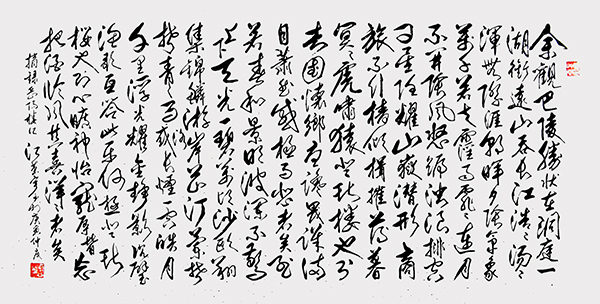 余觀巴陵勝狀在洞庭一
湖銜遠山吞長江浩浩湯湯
渾無際涯朝暉夕陰氣象
萬千若夫霪雨霏霏連月
不開陰風怒號濁浪排空
日星隱耀山嶽潛形商
旅不行檣傾楫摧薄暮
冥冥虎嘯猿啼登斯樓也則
去國懷鄉憂讒畏譏滿
目蕭然感極而悲者矣至
若春和景明波瀾不驚
上下天光一碧萬頃沙鷗翔
集錦鱗游泳岸芷汀蘭郁
郁青青而或長煙一空皓月
千里浮光耀金靜影沉璧
漁歌互答此樂何極登斯
樓也則心曠神怡寵辱皆忘
把酒臨風其喜洋洋者矣
摘錄岳陽樓記